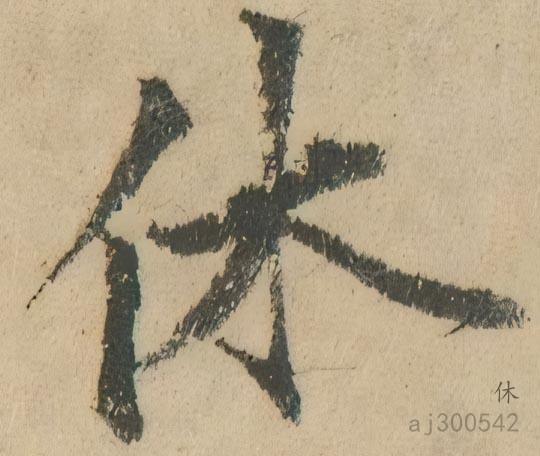 休
休
aj300542